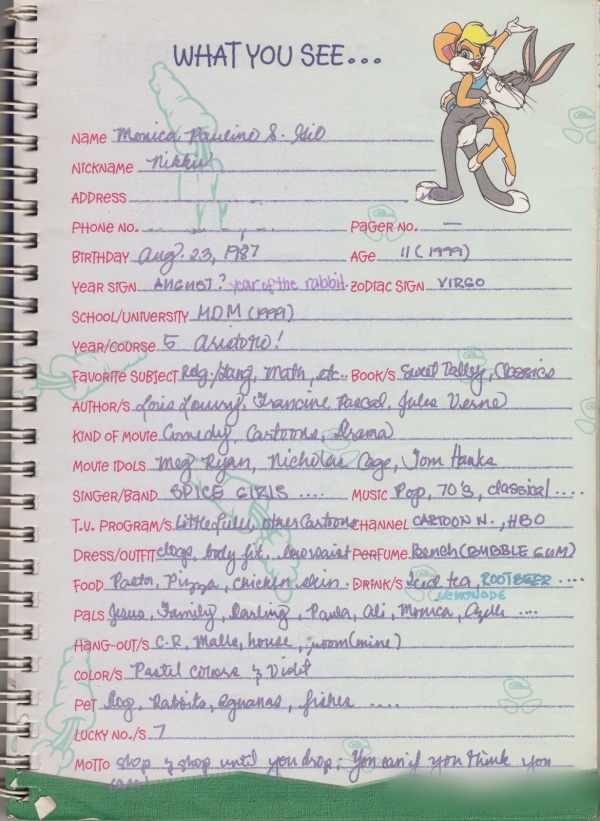 WHAT YOU SEE...
NAME Monica Pauline S. Gil
NICKNAME Nikki
ADDRESS
PHONE NO. PAGER NO. —
BIRTHDAY Aug. 23, 1987 AGE 11 (1999)
YEAR SIGN AUGUST? year of the rabbit. ZODIAC SIGN VIRGO
SCHOOL/UNIVERSITY (1999)
YEAR/COURSE 5
FAVORITE SUBJECT Rdg./Lang, Math, etc.. BOOK/S Sweet Valley, Classics
AUTHOR/S Lois Lowry, Francine Pascal, Jules Verne
KIND OF MOVIE Comedy, Cartoons, Drama
MOVIE IDOLS Meg Ryan, Nicholas Cage, Tom Hanks
SINGER/BAND SPICE GIRLS .... MUSIC Pop, 70's, classical ....
T.V. PROGRAM/S other Cartoons CHANNEL CARTOON N., HBO
DRESS/OUTFIT clogs, body fit.. PERFUME Bench (BUBBLE GUM)
FOOD Pasta, Pizza, chicken skin. DRINK/S Iced tea, ROOTBEER ....
LEMONADE
PALS Jesus, Family, Darling, Paula, Ali, Monica, ....
HANG-OUT/S C.R, Malls, house, room (mine)
COLOR/S Pastel colors & Violet
PET Dog, Rabbits, Iguanas, fishes ....
LUCKY NO./S 7
MOTTO shop & shop until you drop; You can if you think you
can!